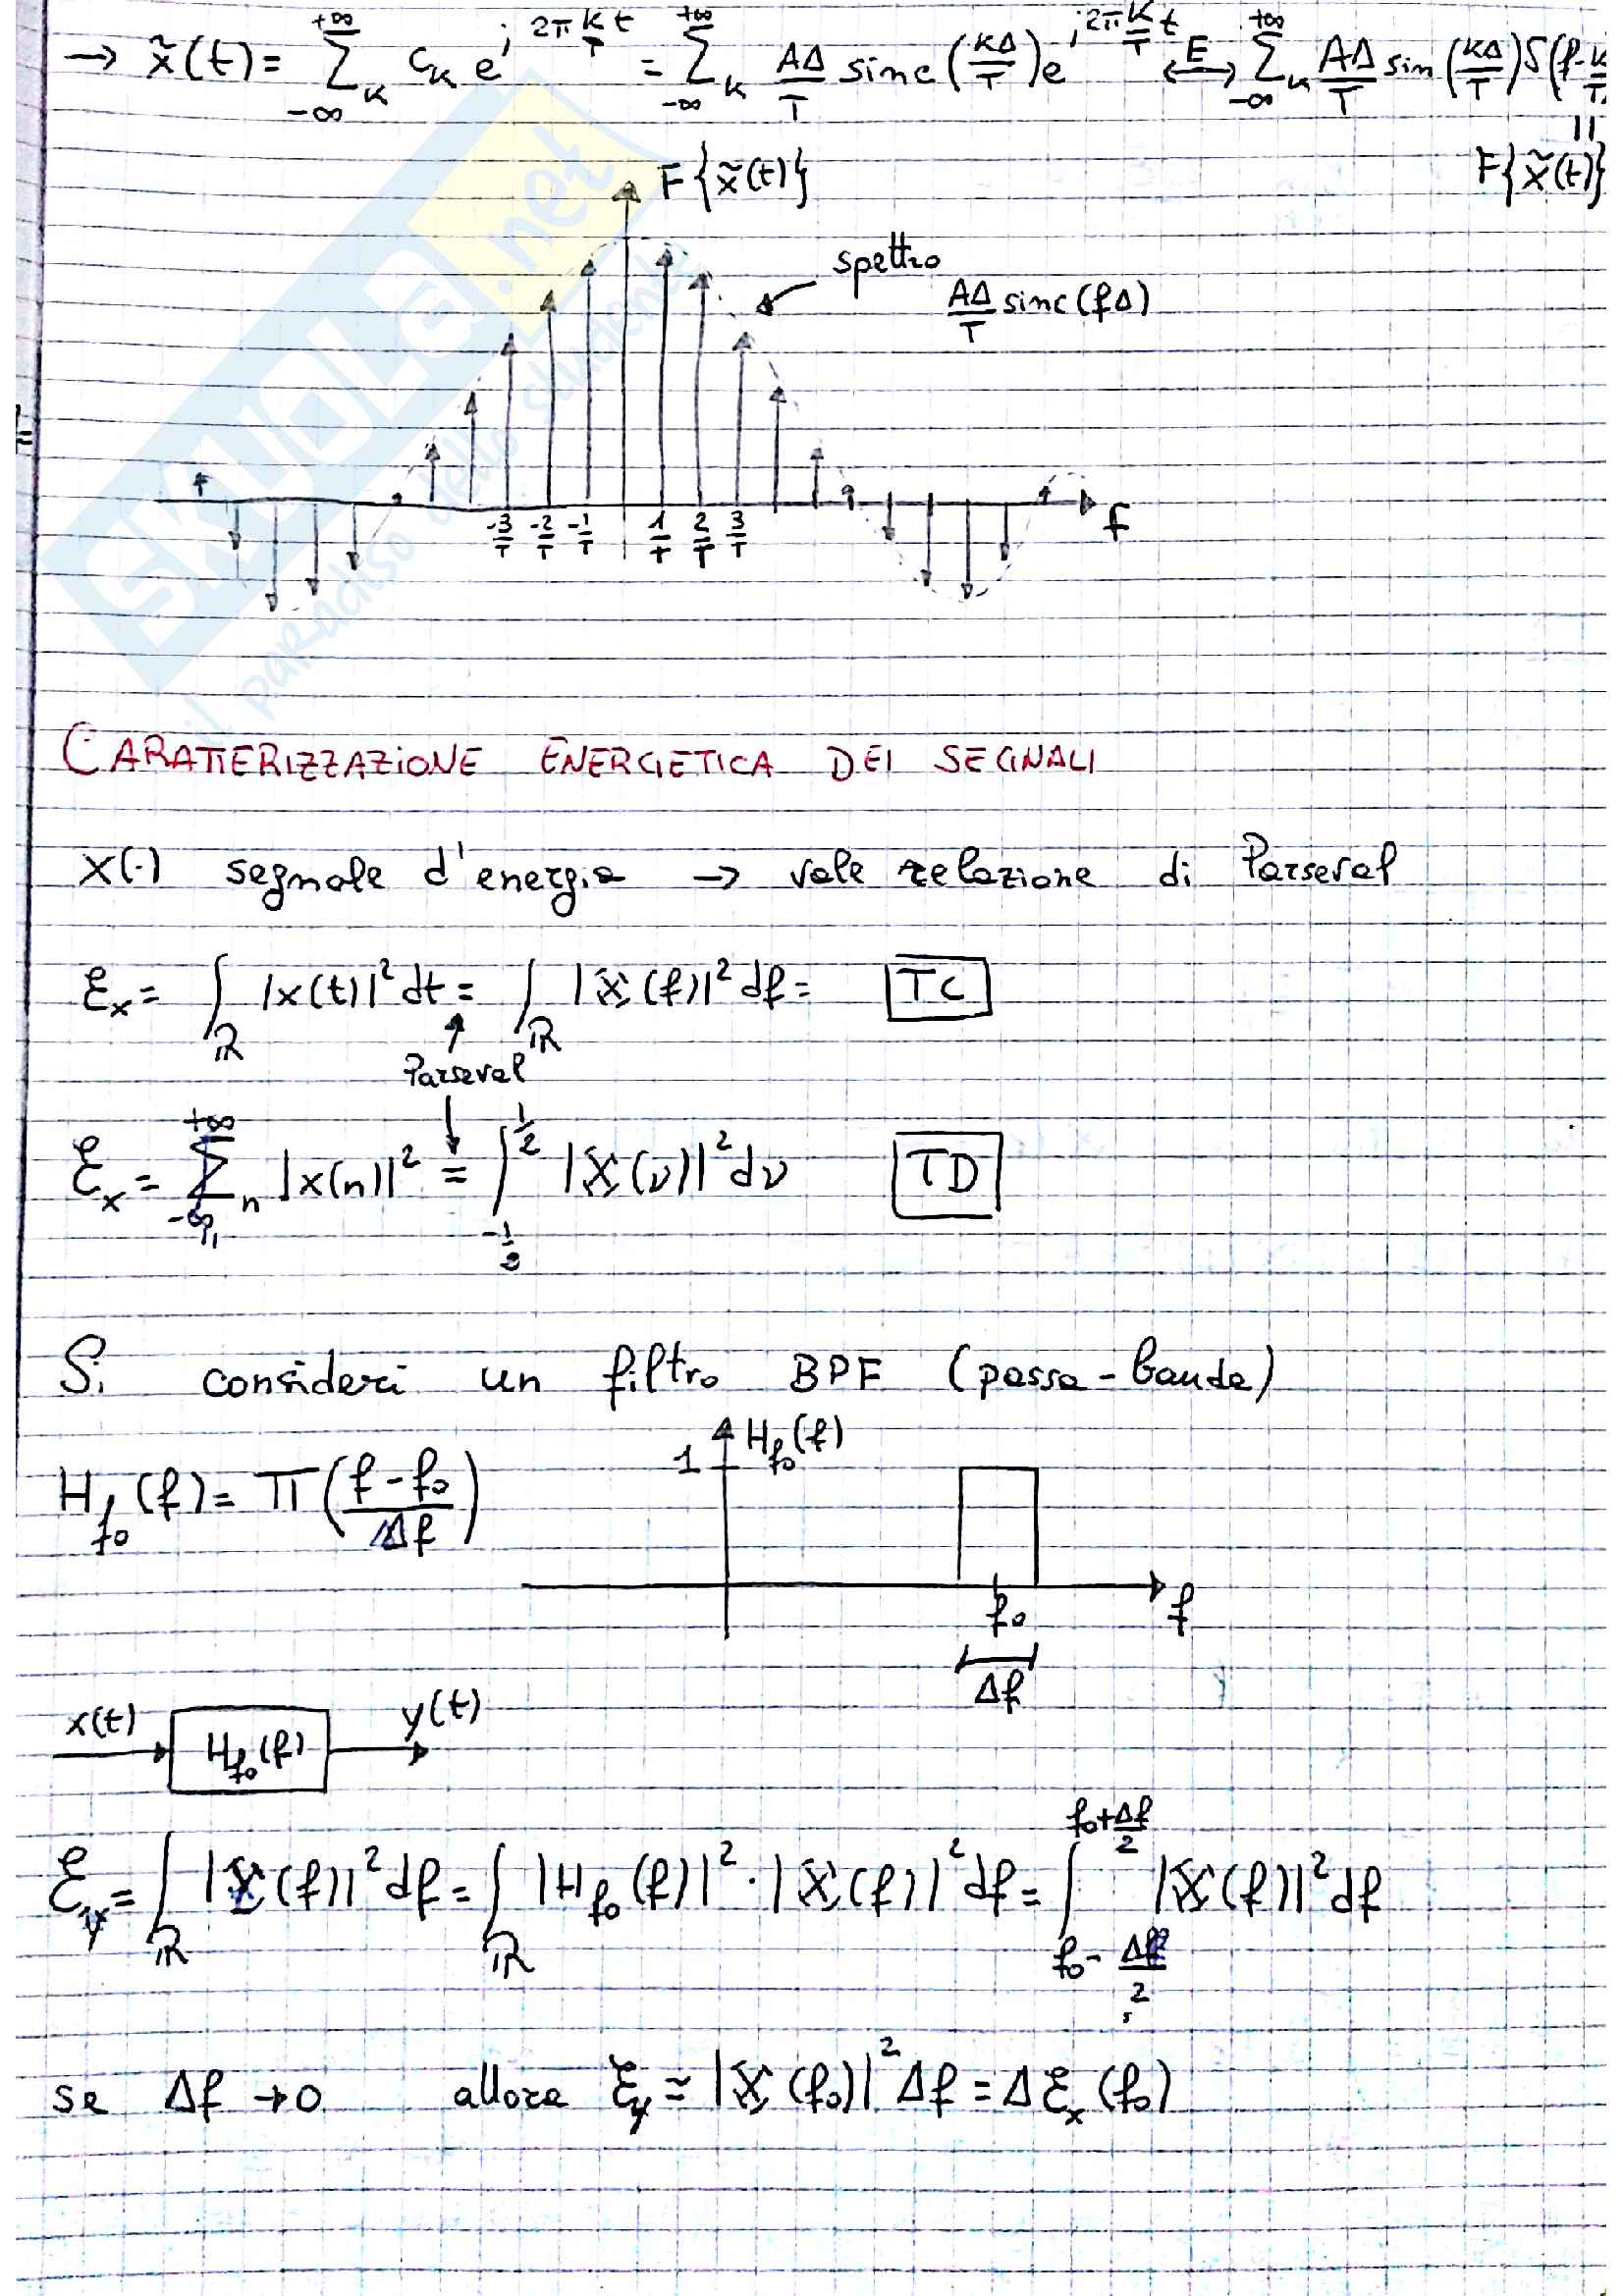 → x̃(t) = Σ_{-∞}^{+∞}_k c_k e^{j 2π k/T t} = Σ_{-∞}^{+∞}_k AΔ/T sinc(kΔ/T) e^{j 2π k/T t} ⟷^{F} Σ_{-∞}^{+∞}_k AΔ/T sin(kΔ/T) δ(f - k/T)
||
F{x̃(t)} F{x̃(t)}
spettro
AΔ/T sinc(fΔ)
-3/T -2/T -1/T 1/T 2/T 3/T f
CARATTERIZZAZIONE ENERGETICA DEI SEGNALI
x(·) segnale d'energia → vale relazione di Parseval
Ɛ_x = ∫_ℝ |x(t)|² dt = ∫_ℝ |X(f)|² df = TC
Parseval
Ɛ_x = Σ_{-∞}^{+∞}_n |x(n)|² = ∫_{-1/2}^{1/2} |X(ν)|² dν TD
Si consideri un filtro BPF (passa-banda)
H_{f₀}(f) = Π((f - f₀)/Δf)
1 H_{f₀}(f)
f₀ f
Δf
x(t) H_{f₀}(f) y(t)
Ɛ_y = ∫_ℝ |Y(f)|² df = ∫_ℝ |H_{f₀}(f)|² · |X(f)|² df = ∫_{f₀-Δf/2}^{f₀+Δf/2} |X(f)|² df
se Δf → 0 allora Ɛ_y ≃ |X(f₀)|² Δf = ΔƐ_x(f₀)
SKUOLA.net
il paradiso dello studente